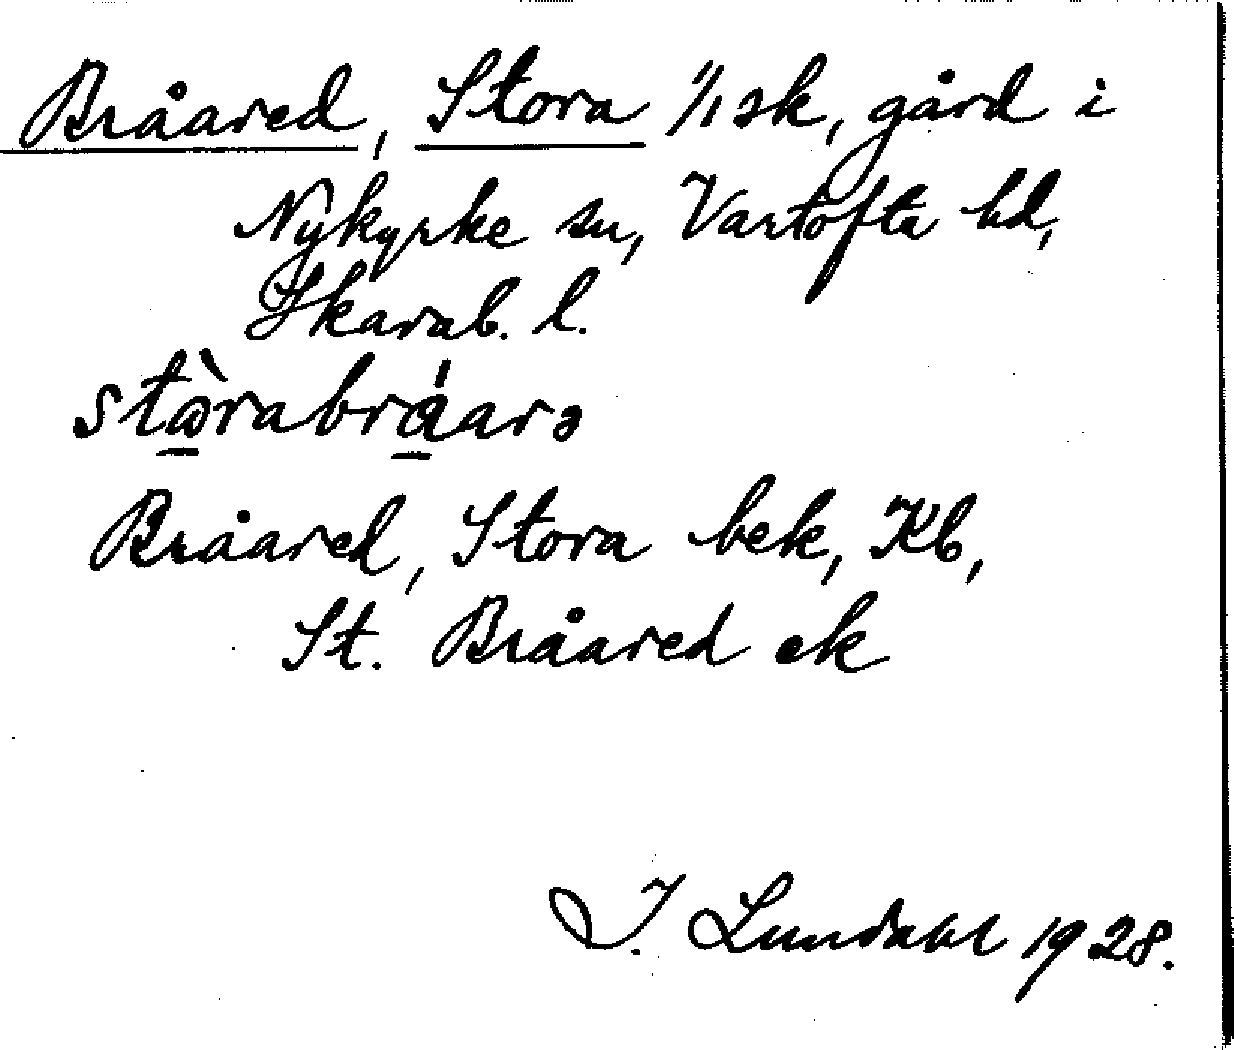 Bråared, Stora 1/1 sk, gård i
Nykyrke sn, Vartofta hd,
Skarab. l.
stòrabráarə
Bråared, Stora bek, Kb,
St. Bråared ek
I. Lundahl 1928.